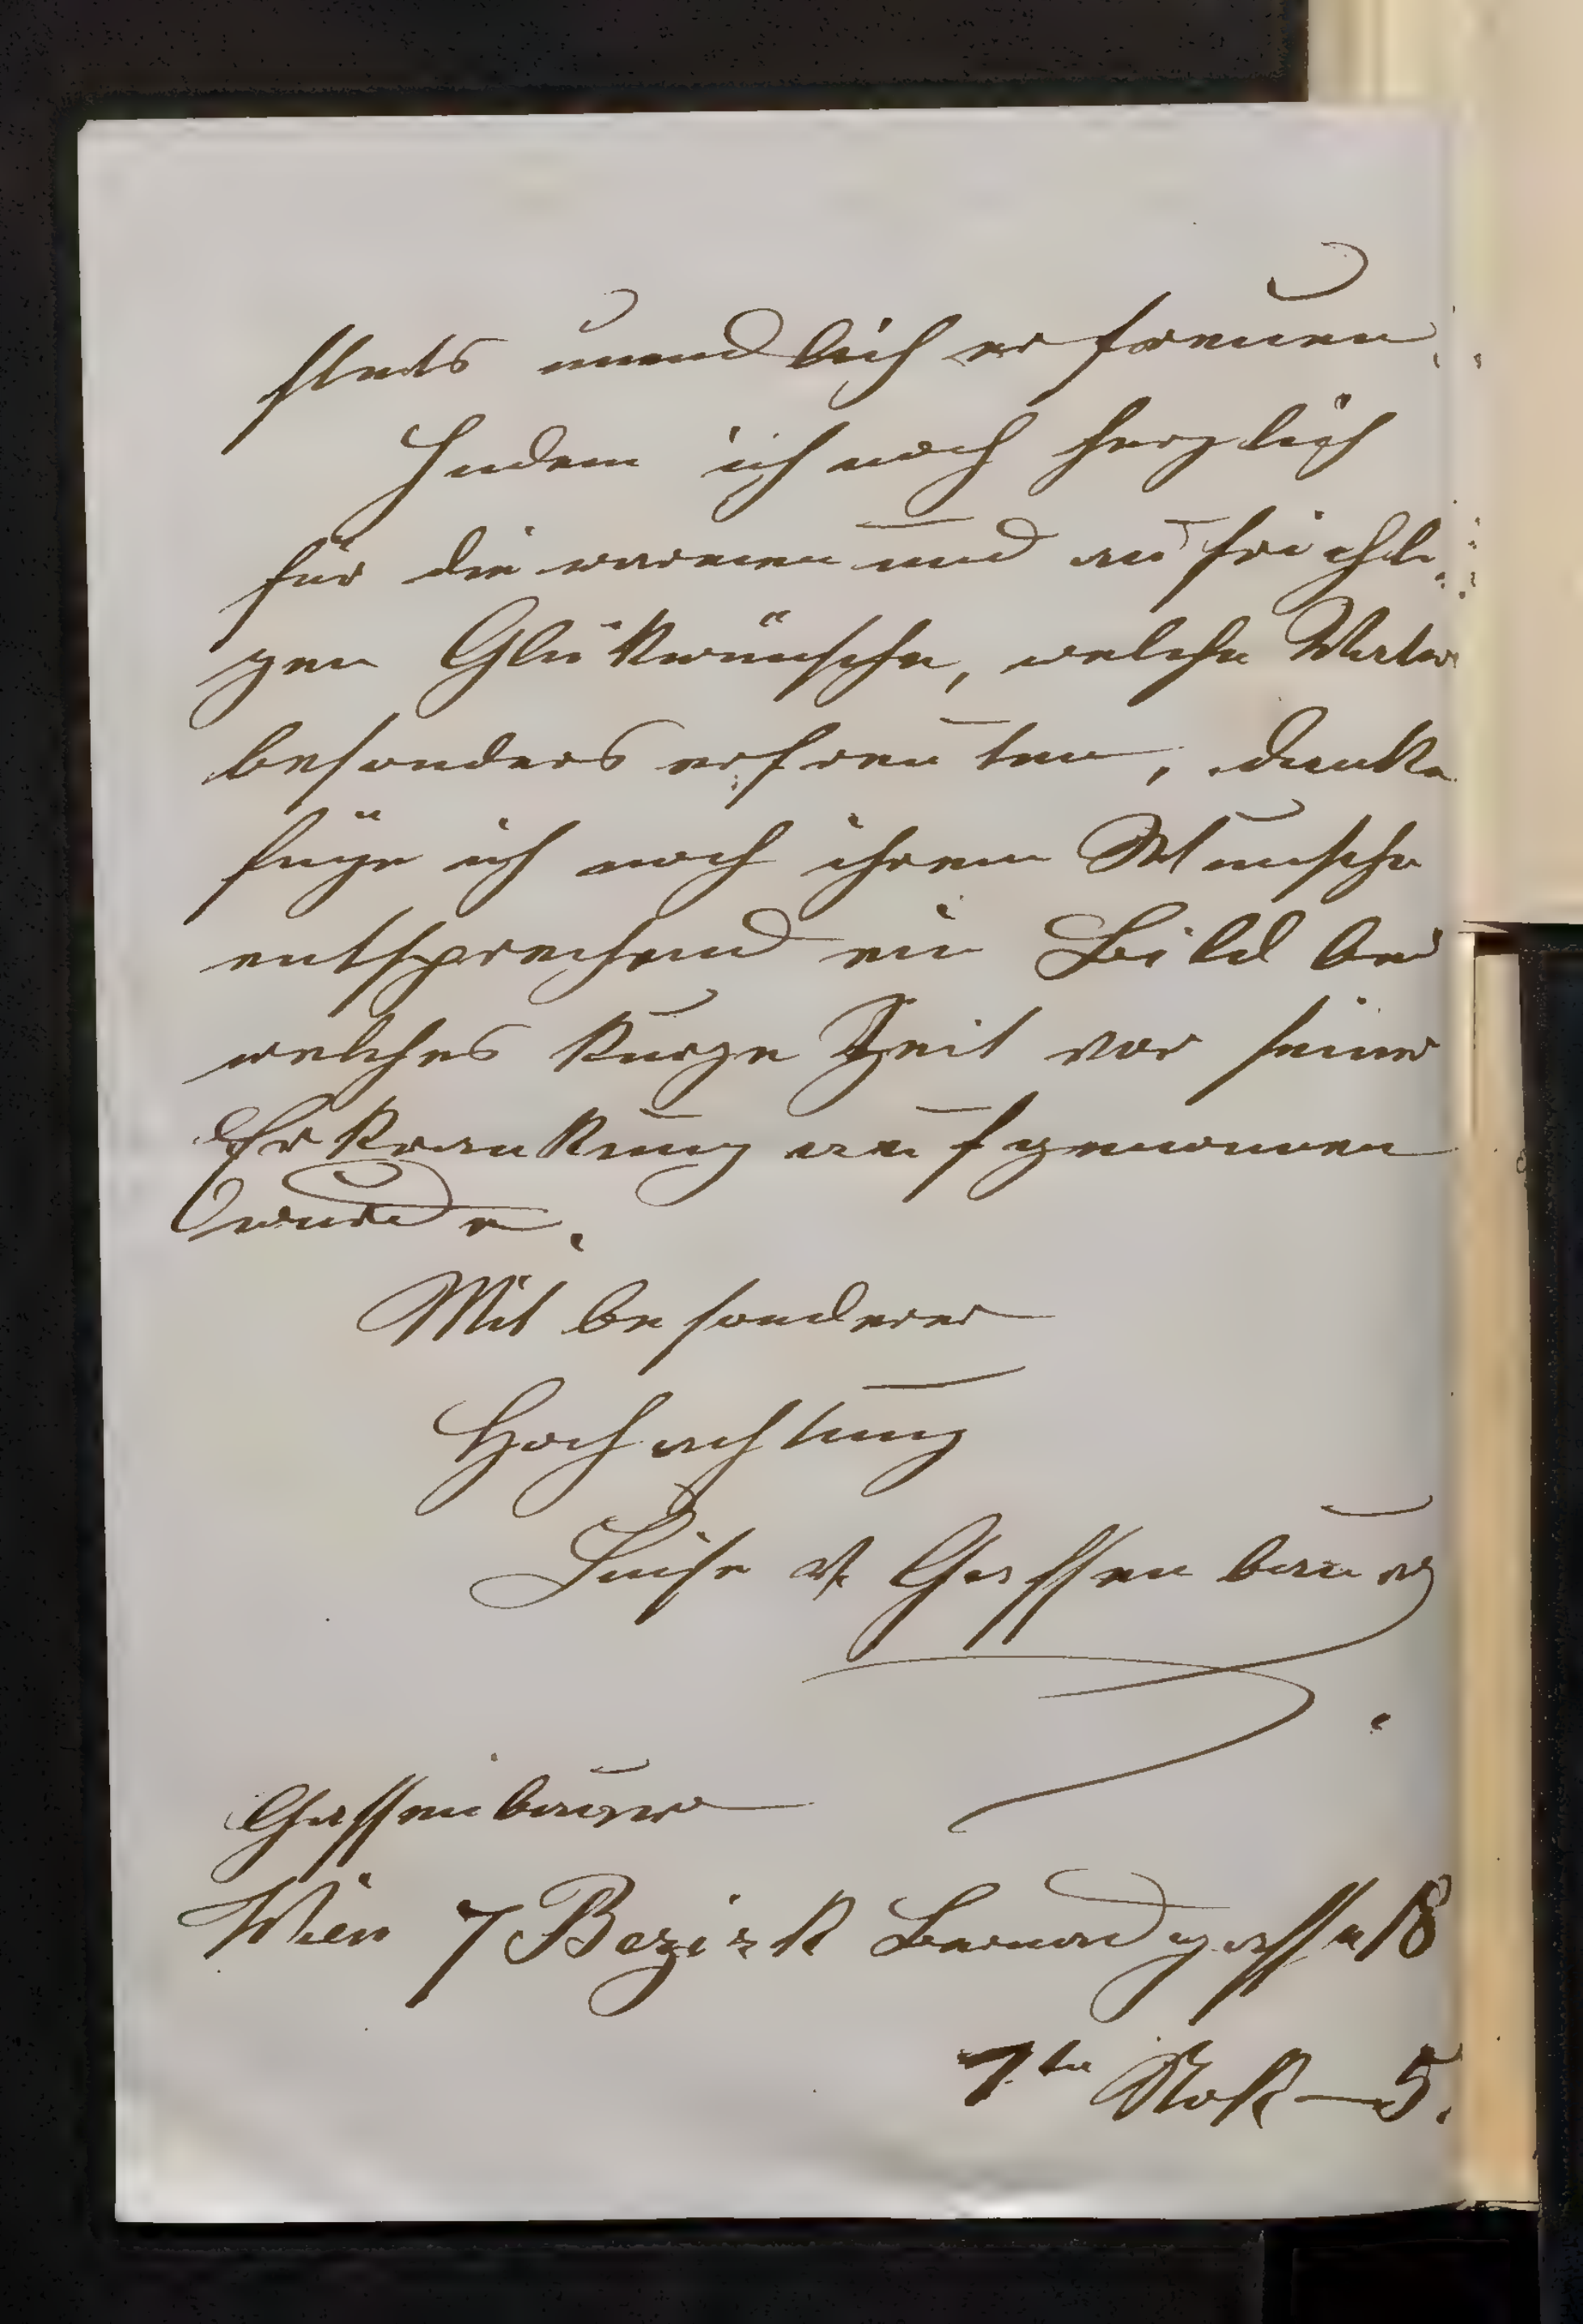 stets unendlich erfreuen.
Indem ich noch herzlich
für die warmen und aufrichti
gen Glükwünsche, welche Vater
besonders erfreuten, danke
füge ich noch ihrem Wunsche
entsprechend ein Bild bei
welches kurze Zeit vor seiner
Erkrankung aufgenommen
wurde.
Mit besonderer
Hochachtung
Luise v. Gassenbauer
Gassenbauer
Wien 7 Bezirk Bernardgasse 18
1te Stok – 5.